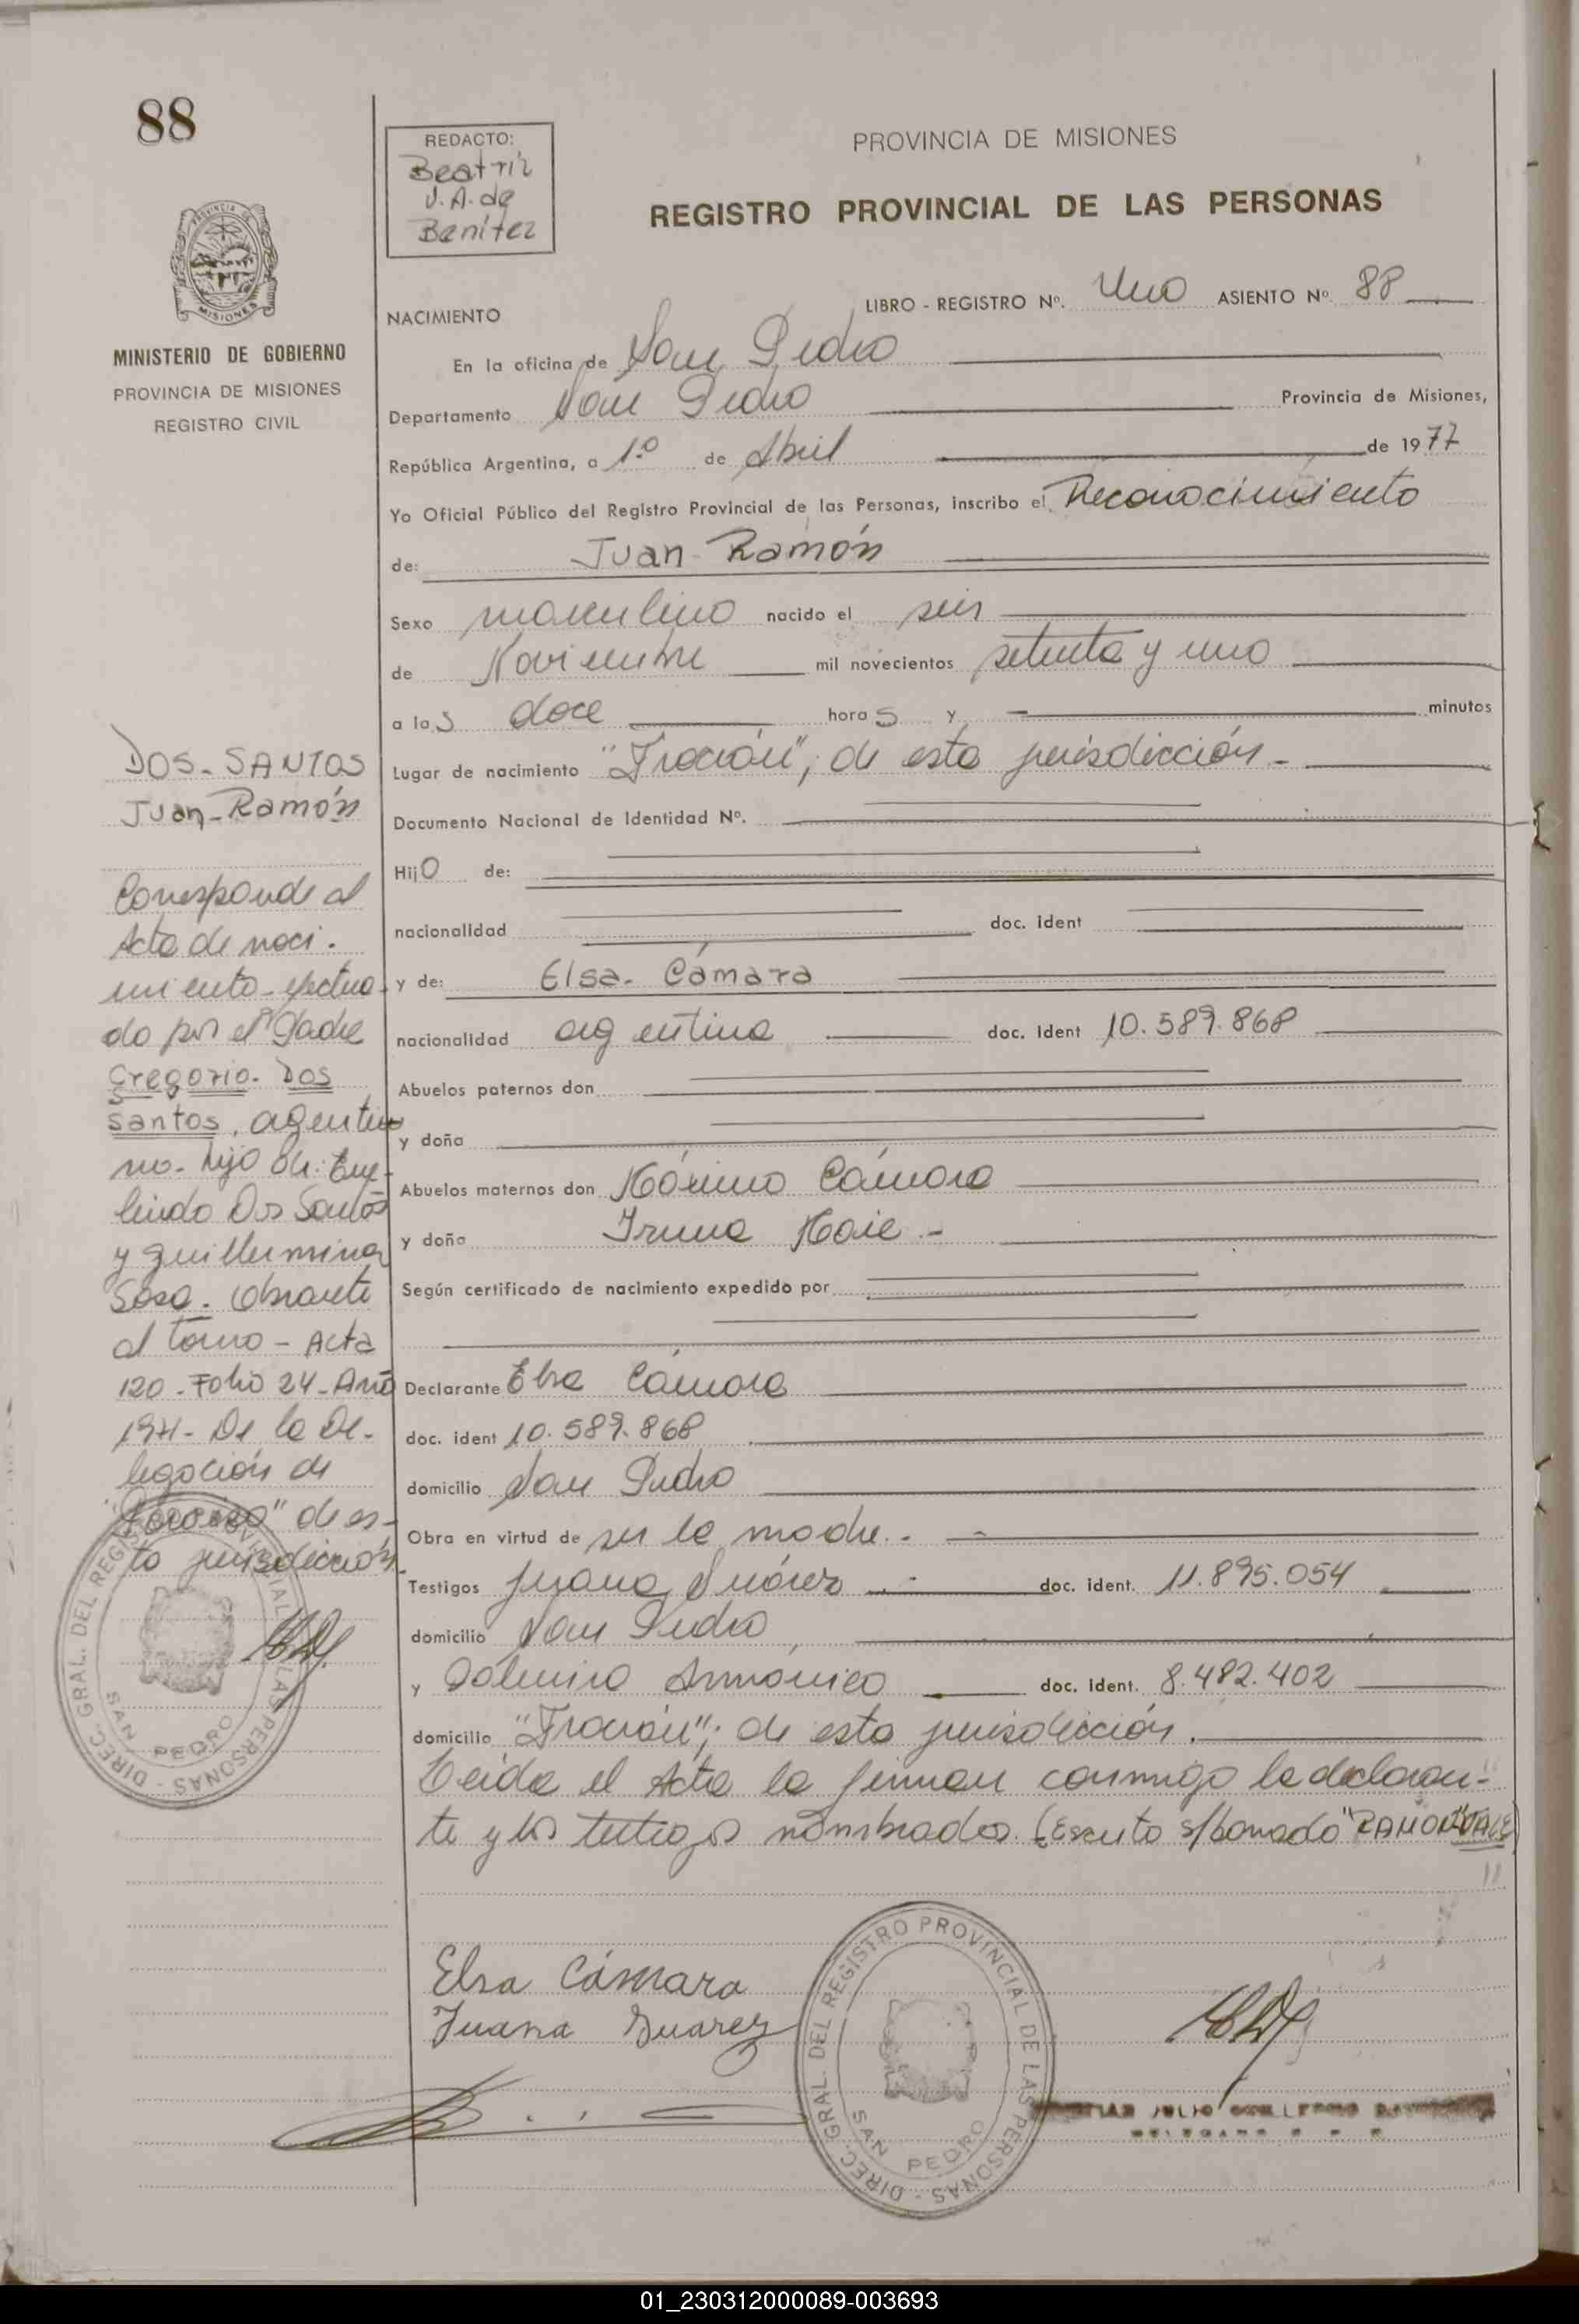 88
REDACTO:
Beatriz
V. A. de
Benítez
PROVINCIA DE MISIONES
REGISTRO PROVINCIAL DE LAS PERSONAS
PROVINCIA DE
MISIONES
MINISTERIO DE GOBIERNO
PROVINCIA DE MISIONES
REGISTRO CIVIL
LIBRO - REGISTRO Nº. Uno ASIENTO Nº 88
NACIMIENTO
En la oficina de San Pedro
Departamento San Pedro Provincia de Misiones,
República Argentina, a 1º de Abril de 1977
Yo Oficial Público del Registro Provincial de las Personas, inscribo el Reconocimiento
de: Juan-Ramón
Sexo masculino nacido el seis
de Noviembre mil novecientos setenta y uno
a las doce horas y — minutos
Lugar de nacimiento " ", de esta jurisdicción.-
Documento Nacional de Identidad Nº.
Hijo de:
nacionalidad doc. ident
y de: Elsa- Cámara
nacionalidad argentina doc. ident 10.589.868
Abuelos paternos don
y doña
Abuelos maternos don Máximo Cámara
y doña Irma
Según certificado de nacimiento expedido por
Declarante Elsa Cámara
doc. ident 10.589.868
domicilio San Pedro
Obra en virtud de ser la madre.-
Testigos Juana Suárez doc. ident. 11.895.054
domicilio San Pedro
y doc. ident. 8.482.402
domicilio " "; de esta jurisdicción.
Leida el Acta la firman conmigo la declaran-
te y los testigos nombrados. (Escrito s/borrado "RAMON" VALE)
DOS-SANTOS
Juan-Ramón
Corresponde al
Acta de naci-
miento-efectua-
do por el Padre
Gregorio- Dos
Santos, argenti-
no- hijo de:
Dos Santos
y Guillermina
Sosa. Obrante
al Tomo - Acta
120-Folio 24-Año
1971- De la De-
legación de
" " de es-
ta jurisdicción.
DIREC. GRAL. DEL REGISTRO PROVINCIAL DE LAS PERSONAS
SAN PEDRO
Elsa Cámara
Juana Suarez
DIREC. GRAL. DEL REGISTRO PROVINCIAL DE LAS PERSONAS
SAN PEDRO
JULIO GUILLERMO
01_230312000089-003693